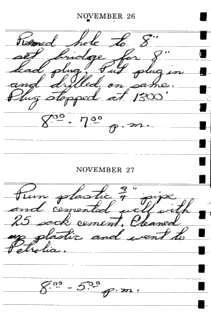 NOVEMBER 26
Reamed hole to 8"
set bridge for 8"
lead plug. Put plug in
and drilled on same.
Plug stopped at 1300'
8:00 - 7:00 p.m.
NOVEMBER 27
Run plastic 3/4" pipe
and cemented well with
25 sack cement. Cleaned
up plastic and went to
Petrolia.
8:00 - 5:00 p.m.